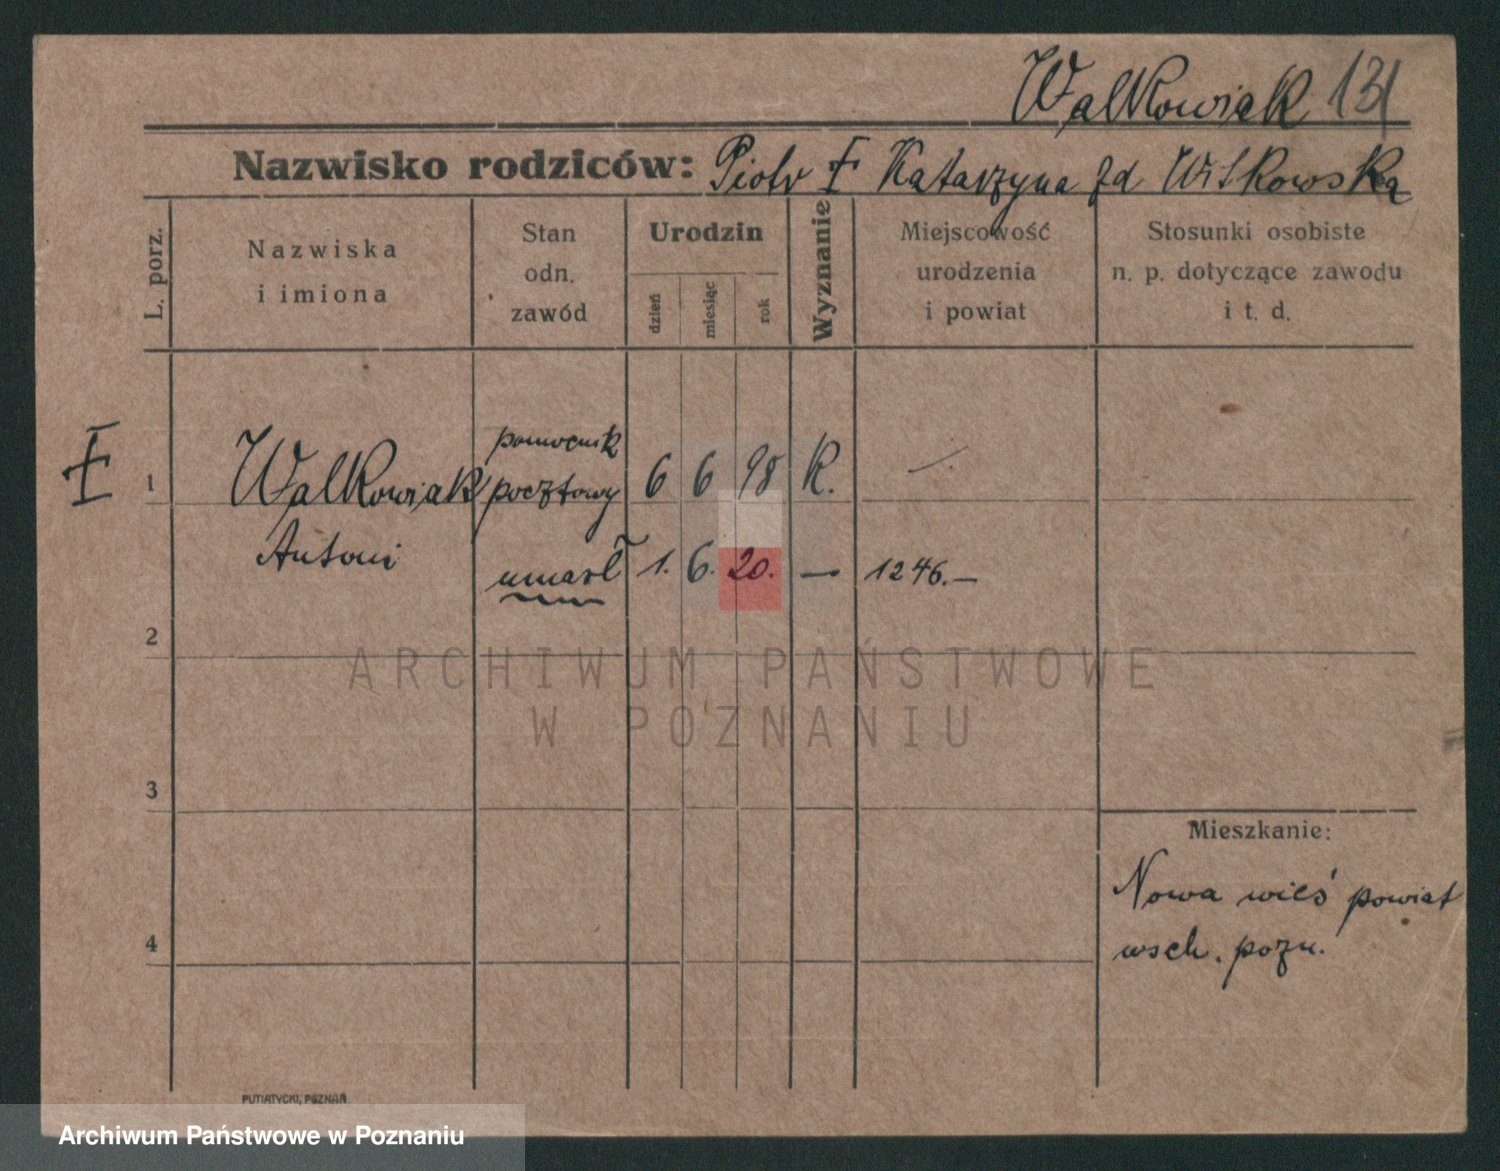 Walkowiak 131
Nazwisko rodziców: Piotr Ŧ Katarzyna zd Witkowska
L. porz.
Nazwiska
i imiona
Stan
odn.
zawód
Urodzin
dzień
miesiąc
rok
Wyznanie
Miejscowość
urodzenia
i powiat
Stosunki osobiste
n. p. dotyczące zawodu
i t. d.
1 Walkowiak pomocnik pocztowy 6 6 98 K. —
Antoni umarł 1. 6. 20. — 1246.—
2
ARCHIWUM PAŃSTWOWE
W POZNANIU
3
Mieszkanie:
Nowa wieś powiat
wsch. pozn.
4
PUTIATYCKI, POZNAŃ
Archiwum Państwowe w Poznaniu